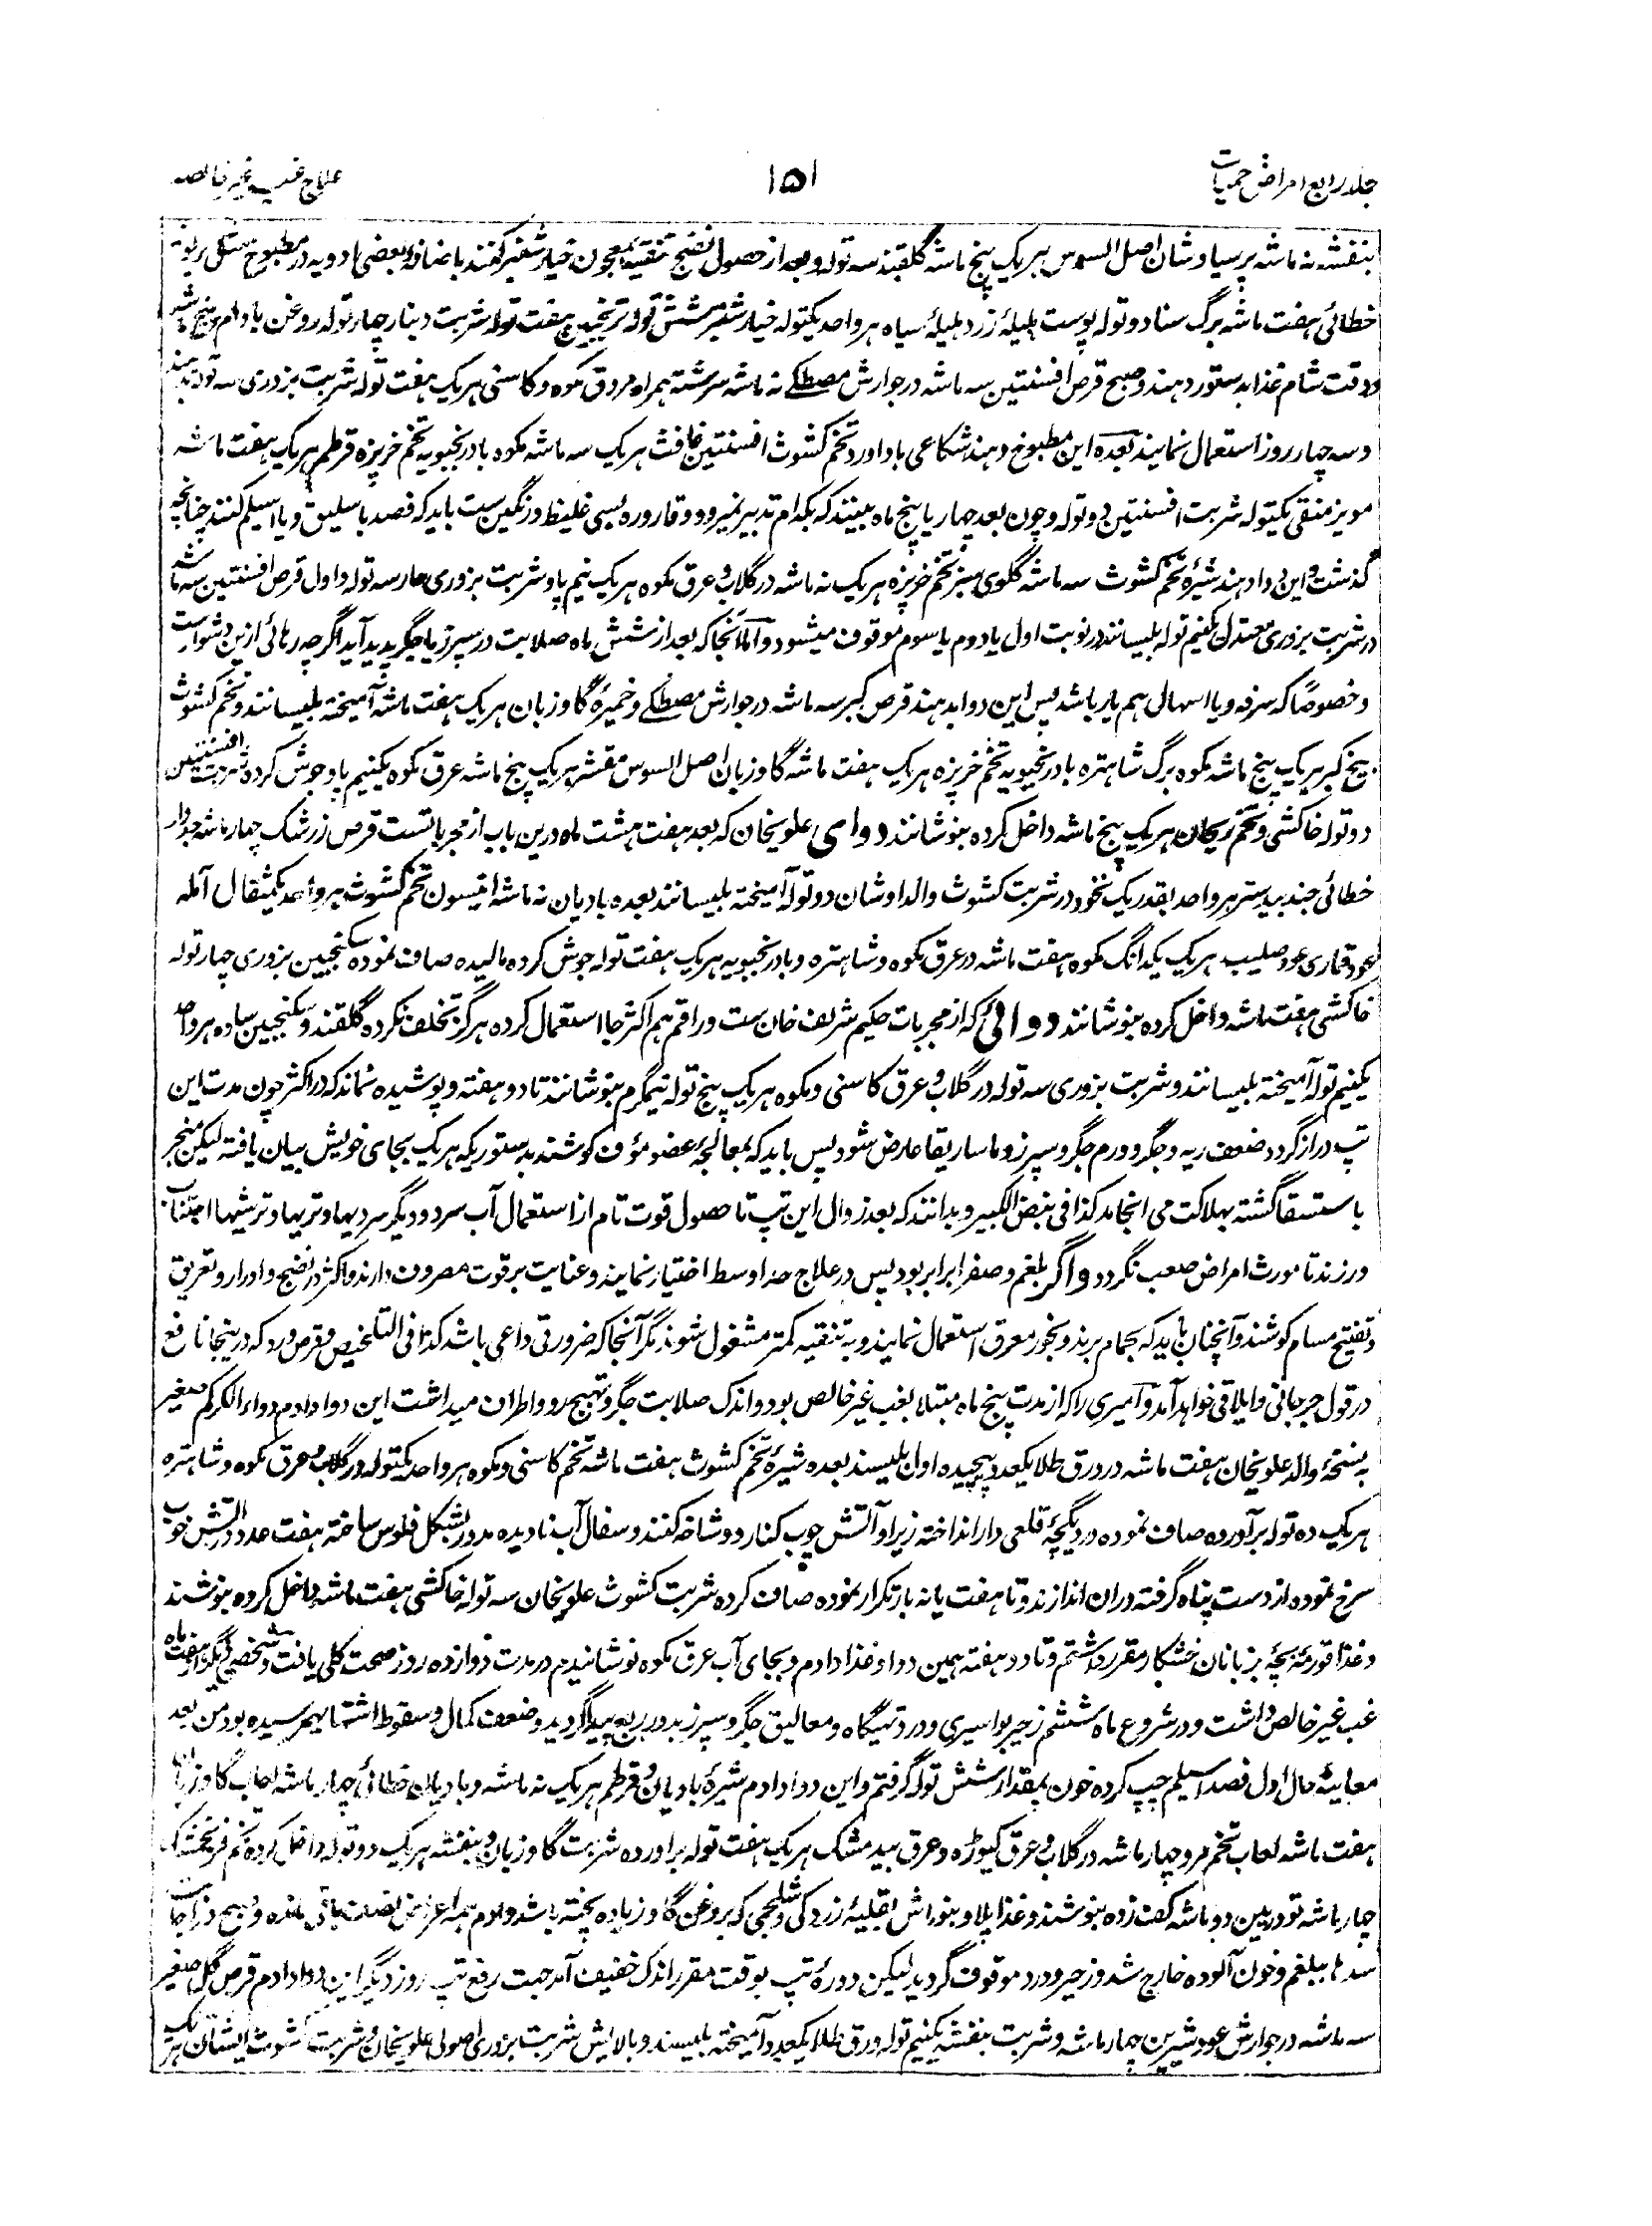 جلد رابع امراض حمیات
۱۵۱
علاج غب غیر خالصه
بنفشه نه ماشه پرسیاوشان اصل السوس هر یک پنج ماشه گلقند سه توله و بعد از حصول نضج تنقیه بمعجون خیارشنبر کنند باضافه بعضی ادویه در مطبوخ مثل ریوند
خطائی هفت ماشه برگ سنا دو توله پوست هلیلهٔ زرد هلیلهٔ سیاه هر واحد یکتوله خیارشنبر شش توله ترنجبین هفت توله شربت دینار چهار توله روغن بادام پنج ماشه
و وقت شام غذا بدستور دهند و صبح قرص افسنتین سه ماشه در جوارش مصطکے نه ماشه سرشته همراه مروق مکوه و کاسنی هر یک هفت توله شربت بزوری سه توله بدهند
و سه چهار روز استعمال نمایند بعده این مطبوخ دهند شکاعی باداورد تخم کشوث افسنتین غافث هر یک سه ماشه مکوه بادرنجبویه تخم خرپزه قرطم هر یک هفت ماشه
مویز منقی یکتوله شربت افسنتین دو توله و چون بعد چهار یا پنج ماه بینند که بکدام تدبیر نمیرود و قاروره بسی غلیظ و رنگین ست باید که فصد باسلیق و یا اسیلم کنند چنانچه
گذشت و این دوا دهند شیرهٔ تخم کشوث سه ماشه گلوی سبز تخم خرپزه هر یک نه ماشه در گلاب و عرق مکوه هر یک نیم پاو شربت بزوری حار سه توله و اول قرص افسنتین سه ماشه
در شربت بزوری معتدل یکنیم توله بلیسانند در نوبت اول یا دوم یا سوم موقوف میشود و اما آنجا که بعد از شش ماه صلابت در سپرز یا جگر پدید آید اگرچه رهائی ازین دشوار است
و خصوصاً که سرفه و یا اسهال هم یار باشد پس این دوا بدهند قرص کبر سه ماشه در جوارش مصطکے و خمیرهٔ گاوزبان هر یک هفت ماشه آمیخته بلیسانند و تخم کشوث
بیخ کبر هر یک پنج ماشه مکوه برگ شاهتره بادرنجبویه تخم خرپزه هر یک هفت ماشه گاوزبان اصل السوس مقشر هر یک پنج ماشه عرق مکوه یکنیم پاو جوش کرده شربت افسنتین
دو توله خاکشی و تخم ریحان هر یک پنج ماشه داخل کرده بنوشانند دوای علویخان که بعد هفت هشت ماه درین باب از مجرباتست قرص زرشک چهار ماشه جدوار
خطائی جندبیدستر هر واحد بقدر یک نخود در شربت کشوث والد اوشان دو توله آمیخته بلیسانند بعده بادیان نه ماشه انیسون تخم کشوث هر واحد یکمثقال آمله
عود قماری عود صلیب هر یک یکدانگ مکوه هفت ماشه در عرق مکوه و شاهتره و بادرنجبویه هر یک هفت توله جوش کرده مالیده صاف نموده سکنجبین بزوری چهار توله
خاکشی هفت ماشه داخل کرده بنوشانند دوائی که از مجربات حکیم شریف خان ست و راقم هم اکثر جا استعمال کرده هرگز تخلف نکرده گلقند و سکنجبین ساده هر واحد
یکنیم توله آمیخته بلیسانند و شربت بزوری سه توله در گلاب و عرق کاسنی و مکوه هر یک پنج توله نیمگرم بنوشانند تا دو هفته و پوشیده نماند که در اکثر چون مدت این
تپ دراز گردد ضعف ریه و جگر و ورم جگر و سپرز و ماساریقا عارض شود پس باید که بمعالجه عضو مؤف کوشند بدستوریکه هر یک بجای خویش بیان یافته لیکن منجر
باستسقا گشته بهلاکت می انجامد کذا فی نبض الکبیر و بدانند که بعد زوال این تپ تا حصول قوت تام از استعمال آب سرد و دیگر سردیها و تریها و ترشیها اجتناب
ورزند تا مورث امراض صعب نگردد و اگر بلغم و صفرا برابر بود پس در علاج حد اوسط اختیار نمایند و عنایت بر قوت مصروف دارند و اکثر در نضج و ادرار و تعریق
و تفتیح مسام کوشند و آنچنان باید که بحمام برند و بخور معرق استعمال نمایند و به تنقیه کمتر مشغول شوند مگر آنجا که ضرورتی داعی باشد کذا فی التلخیص و قرص ورد که درینجا نافع
در قول جرجانی و ایلاقی خواهد آمد و امیری را که از مدت پنج ماه مبتلا بغب غیر خالص بود و اندک صلابت جگر و تهبج رو و اطراف میداشت این دوا دادم دواء الکرکم صغیر
بنسخهٔ والد علویخان هفت ماشه در ورق طلا یکعدد پیچیده اول بلیسند بعده شیرهٔ تخم کشوث هفت ماشه تخم کاسنی و مکوه هر واحد یکتوله در گلاب و عرق مکوه و شاهتره
هر یک ده توله برآورده صاف نموده در دیگچهٔ قلعی دار انداخته زیر او آتش چوب کنار دو شاخه کنند و سفال آب نادیده مدور بشکل فلوس ساخته هفت عدد در آتش خوب
سرخ نموده از دست پناه گرفته دران اندازند و تا هفت یا نه بار تکرار نموده صاف کرده شربت کشوث علویخان سه توله خاکشی هفت ماشه داخل کرده بنوشند
و غذا قورمهٔ بچهٔ بز با نان خشکار مقرر داشتم و تا دو هفته همین دوا و غذا دادم و بجای آب عرق مکوه نوشانیدم در مدت دوازده روز صحت کلی یافت و شخصی دیگر از هفت ماه
غب غیر خالص داشت و در شروع ماه ششم زحیر بواسیری و درد تهیگاه و معالیق جگر و سپرز بدور ربع پیدا گردید و ضعف کمال و سقوط اشتها بهمرسیده بود من بعد
معاینهٔ حال اول فصد اسیلم چپ کرده خون بمقدار شش توله گرفتم و این دوا دادم شیرهٔ بادیان و قرطم هر یک نه ماشه و بادیان خطائی چهار ماشه لعاب گاوزبان
هفت ماشه لعاب تخم مرو چهار ماشه در گلاب و عرق کیوڑه و عرق بیدمشک هر یک هفت توله برآورده شربت گاوزبان و بنفشه هر یک دو توله داخل کرده تخم فرنجمشک
چهار ماشه تودریین دو ماشه کف زده بنوشند و غذا پلاو بنوماش بقلیهٔ زردکی و شلجمی که بروغن گاو زیاده پخته باشد دادم همه اعراض بصفت باقی مانده و صبح در اجابت
سدها ببلغم و خون آلوده خارج شد و زحیر و درد موقوف گردید لیکن دورهٔ تپ بوقت مقرر اندک خفیف آمد جهت رفع تپ روز دیگر این دوا دادم قرص گل صغیر
سه ماشه در جوارش عود شیرین چهار ماشه و شربت بنفشه یکنیم توله ورق طلا یکعدد آمیخته بلیسند و بالایش شربت بزوری اصولی علویخان و شربت کشوث ایشان هر یک